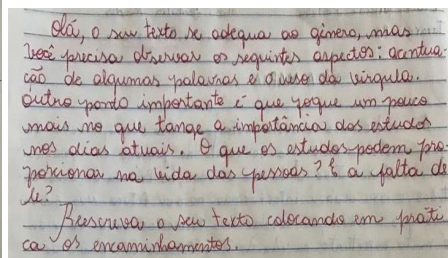 Olá, o seu texto se adequa ao gênero, mas
você precisa observar os seguintes aspectos: acentua-
ção de algumas palavras e o uso da vírgula.
Outro ponto importante é que foque um pouco
mais no que tange a importância dos estudos
nos dias atuais. O que os estudos podem pro-
porcionar na vida das pessoas? E a falta de
le?
Reescreva o seu texto colocando em práti
ca os encaminhamentos.